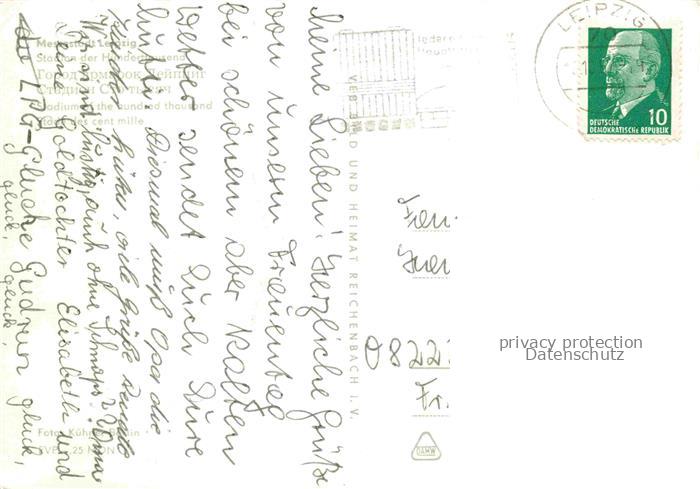 Messestadt Leipzig
Stadion der Hunderttausend
Город ярмарок Лейпциг
Стадион Сто тысяч
Stadium of the hundred thousand
Stade des cent mille
Meine Lieben! Herzliche Grüße
von unserm Frauentag
bei schönem aber kalten
Wetter sendet Euch Eure
Diesmal muß Opa die
hüten, viele Grüße
auch ohne Schnaps! Oma
Goldtochter Elisabeth und
die LPG-Glucke Gudrun gluck,
gluck, gluck,
VERLAG BILD UND HEIMAT REICHENBACH I. V.
Foto: Kühn, Berlin
EVP 0,25 MDN
LEIPZIG
DEUTSCHE
DEMOKRATISCHE REPUBLIK
10
0822
Fr.
DAMW
privacy protection
Datenschutz